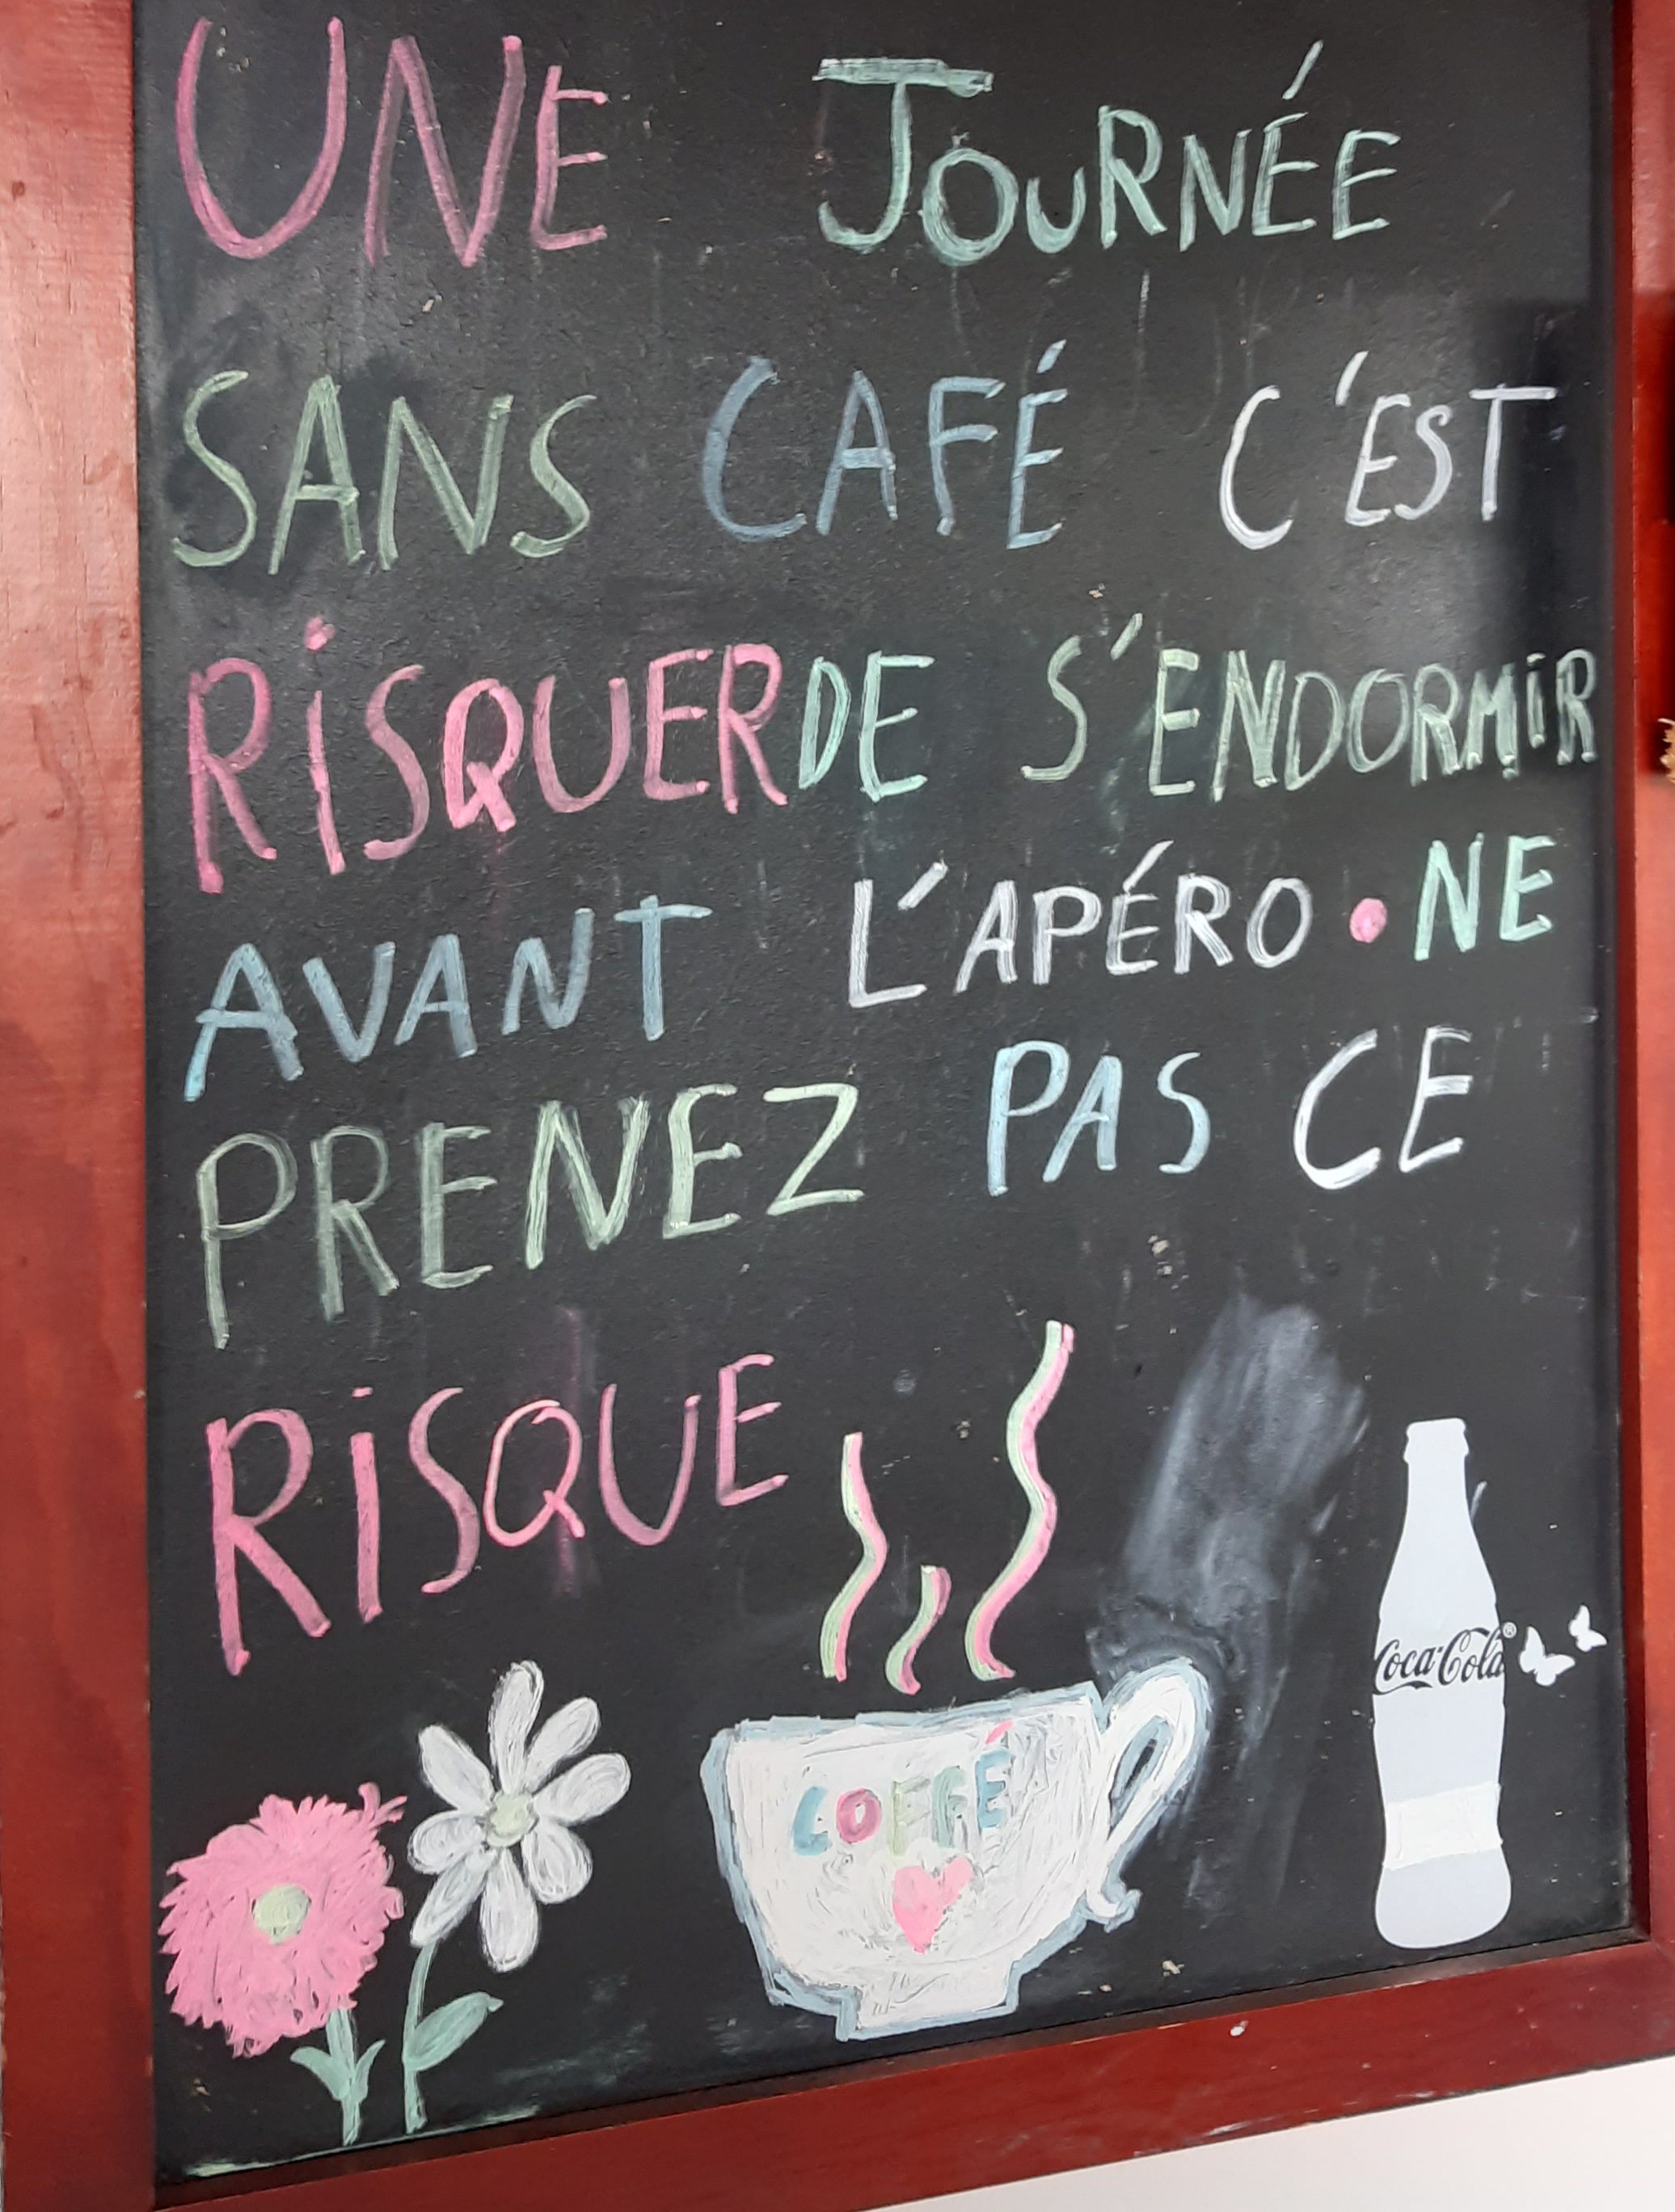 UNE JOURNÉE
SANS CAFÉ C'EST
RISQUER DE S'ENDORMIR
AVANT L'APÉRO • NE
PRENEZ PAS CE
RISQUE
COFFÉ
Coca-Cola®